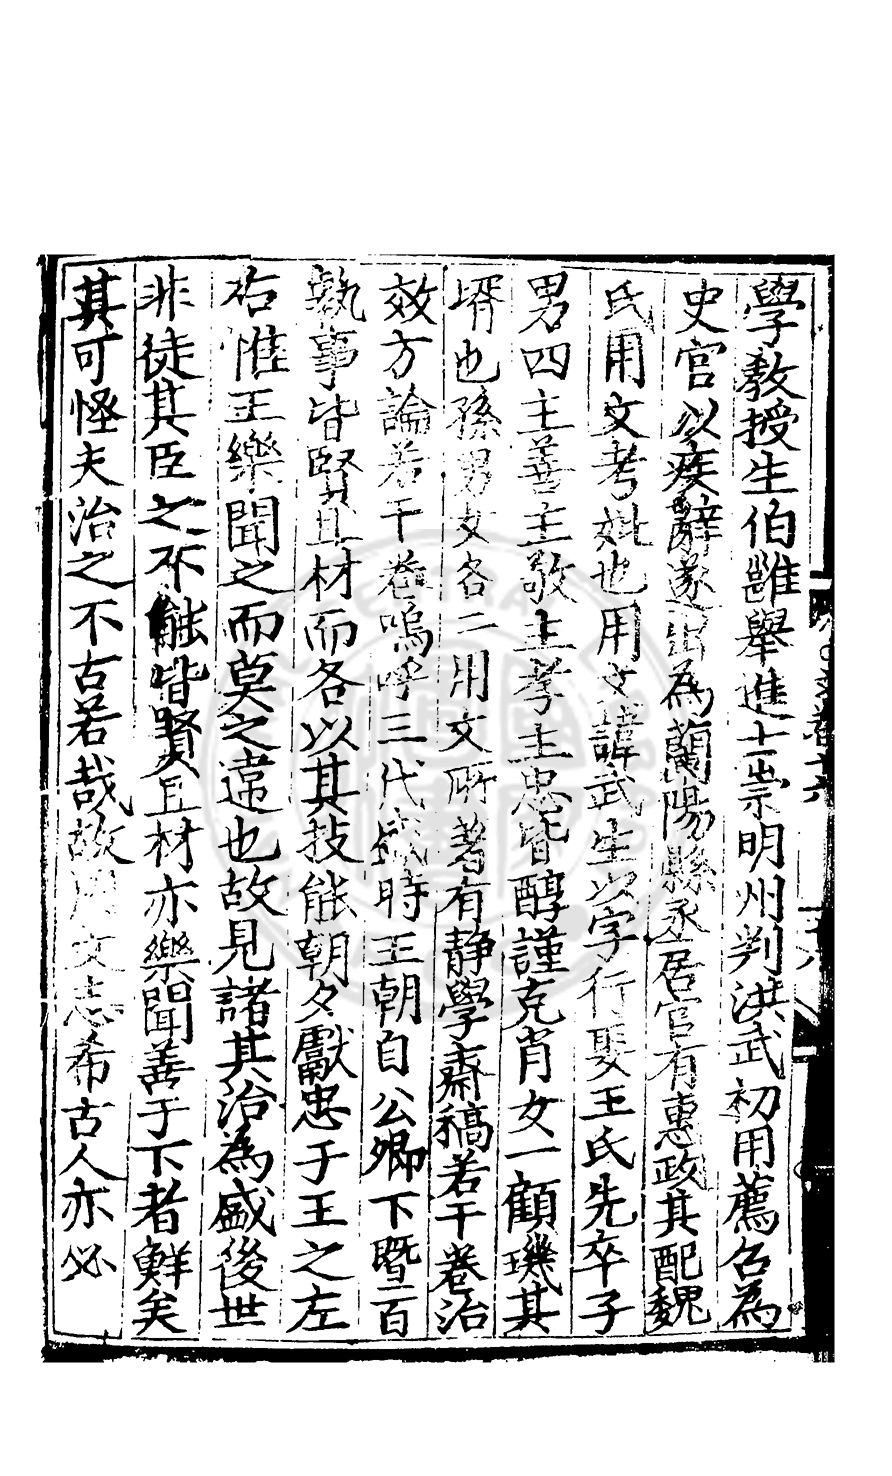 學教授生伯雝舉進士崇明州判洪武初用薦召為
史官以疾辭遂出為蘭陽縣丞居官有惠政其配魏
氏用文考妣也用文諱武生以字行娶王氏先卒子
男四主善主敬主孝主忠皆醇謹克肖女一顧璣其
壻也孫男女各二用文所著有靜學齋稿若干卷治
效方論若干卷嗚呼三代盛時王朝自公卿下暨百
執事皆賢且材而各以其技能朝夕獻忠于王之左
右惟王樂聞之而莫之違也故見諸其治為盛後世
非徒其臣之不能皆賢且材亦樂聞善于下者鮮矣
其可怪夫治之不古若哉故用文志希古人亦必